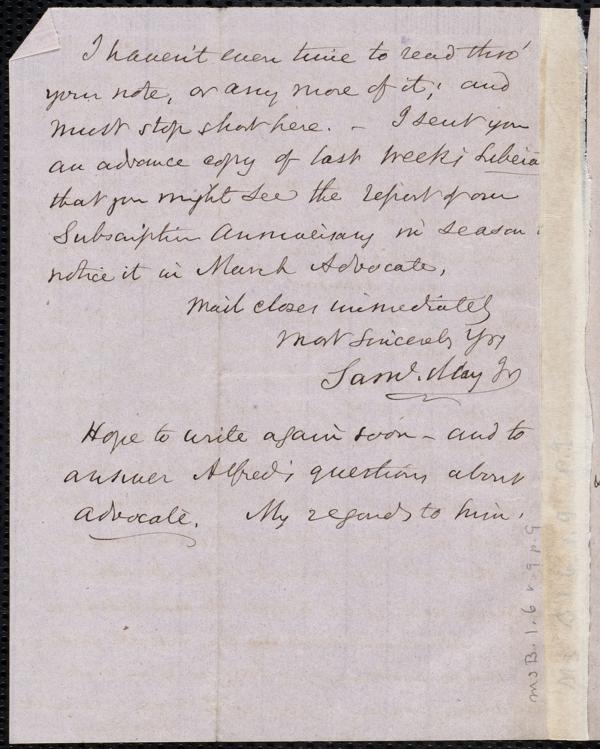 I haven't even time to read thro'
your note, or any more of it; and
must stop short here. – I sent you
an advance copy of last week's Libera
that you might see the report of our
Subscription Anniversary in season
notice it in March Advocate.
Mail closes immediately
Most sincerely Yrs
Saml. May Jr
Hope to write again soon – and to
answer Alfred's questions about
Advocate. My regards to him.
Ms B. 1. 6 v. 9 p. 9